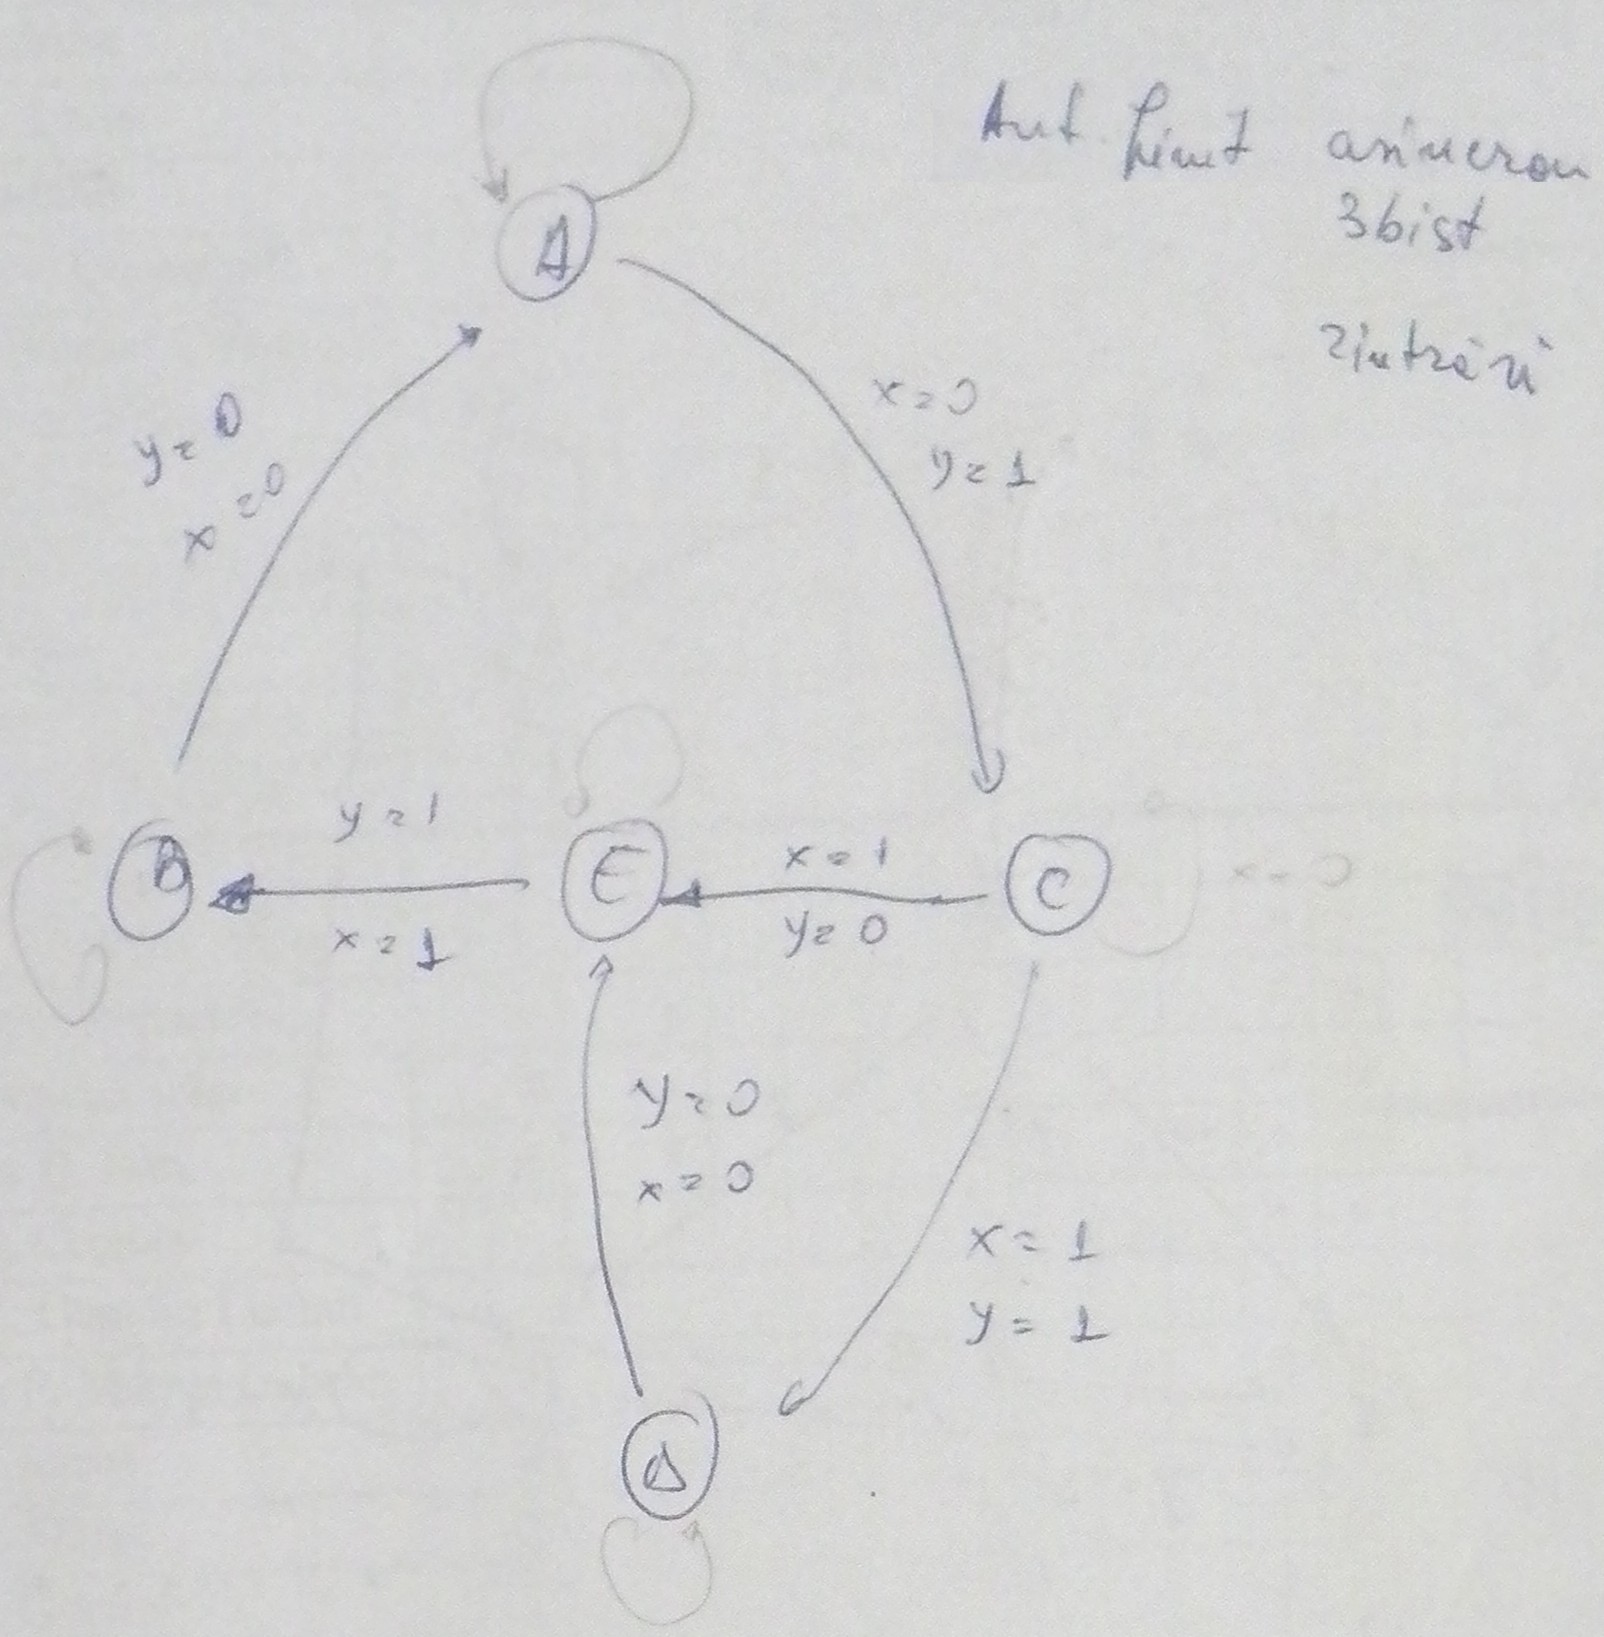 Aut finit asincron
3bist
2intrări
A
x=0
y=1
y=0
x=0
B
y=1
x=1
E
x=1
y=0
C
x=0
y=0
x=0
x=1
y=1
D